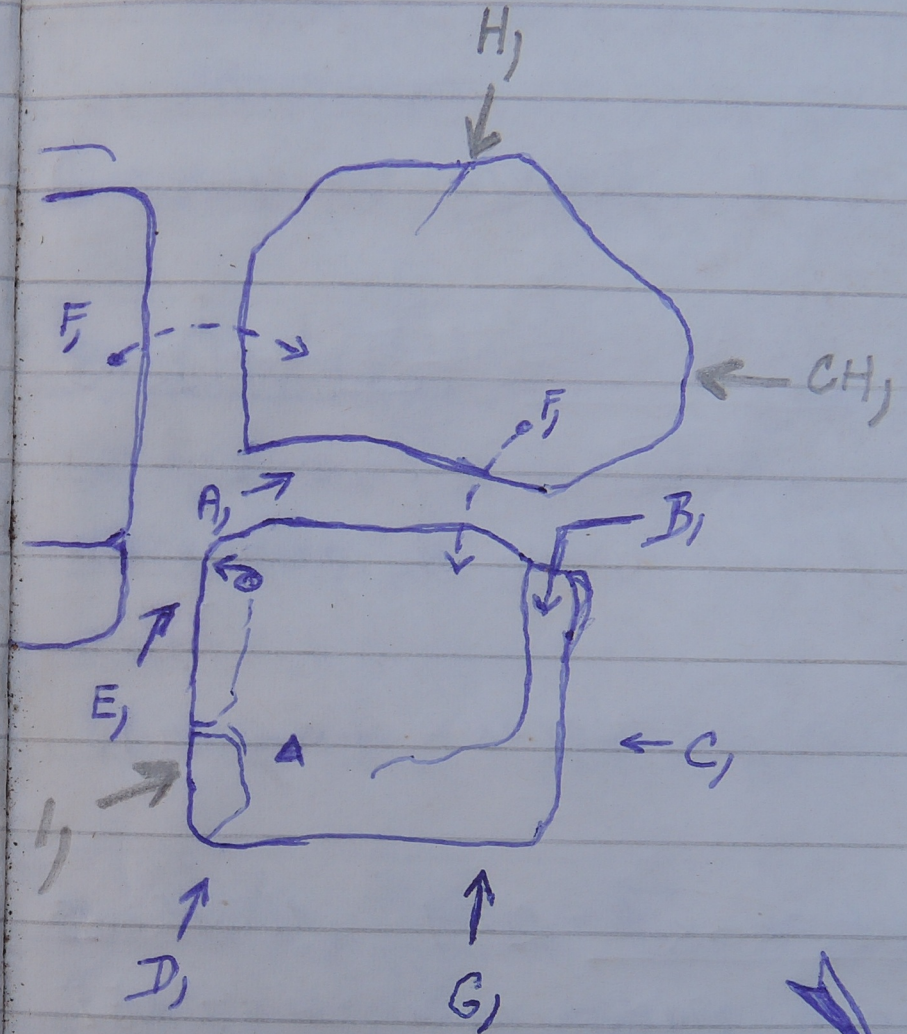 H,
F,
CH,
F,
A,
B,
E,
C,
I,
D,
G,